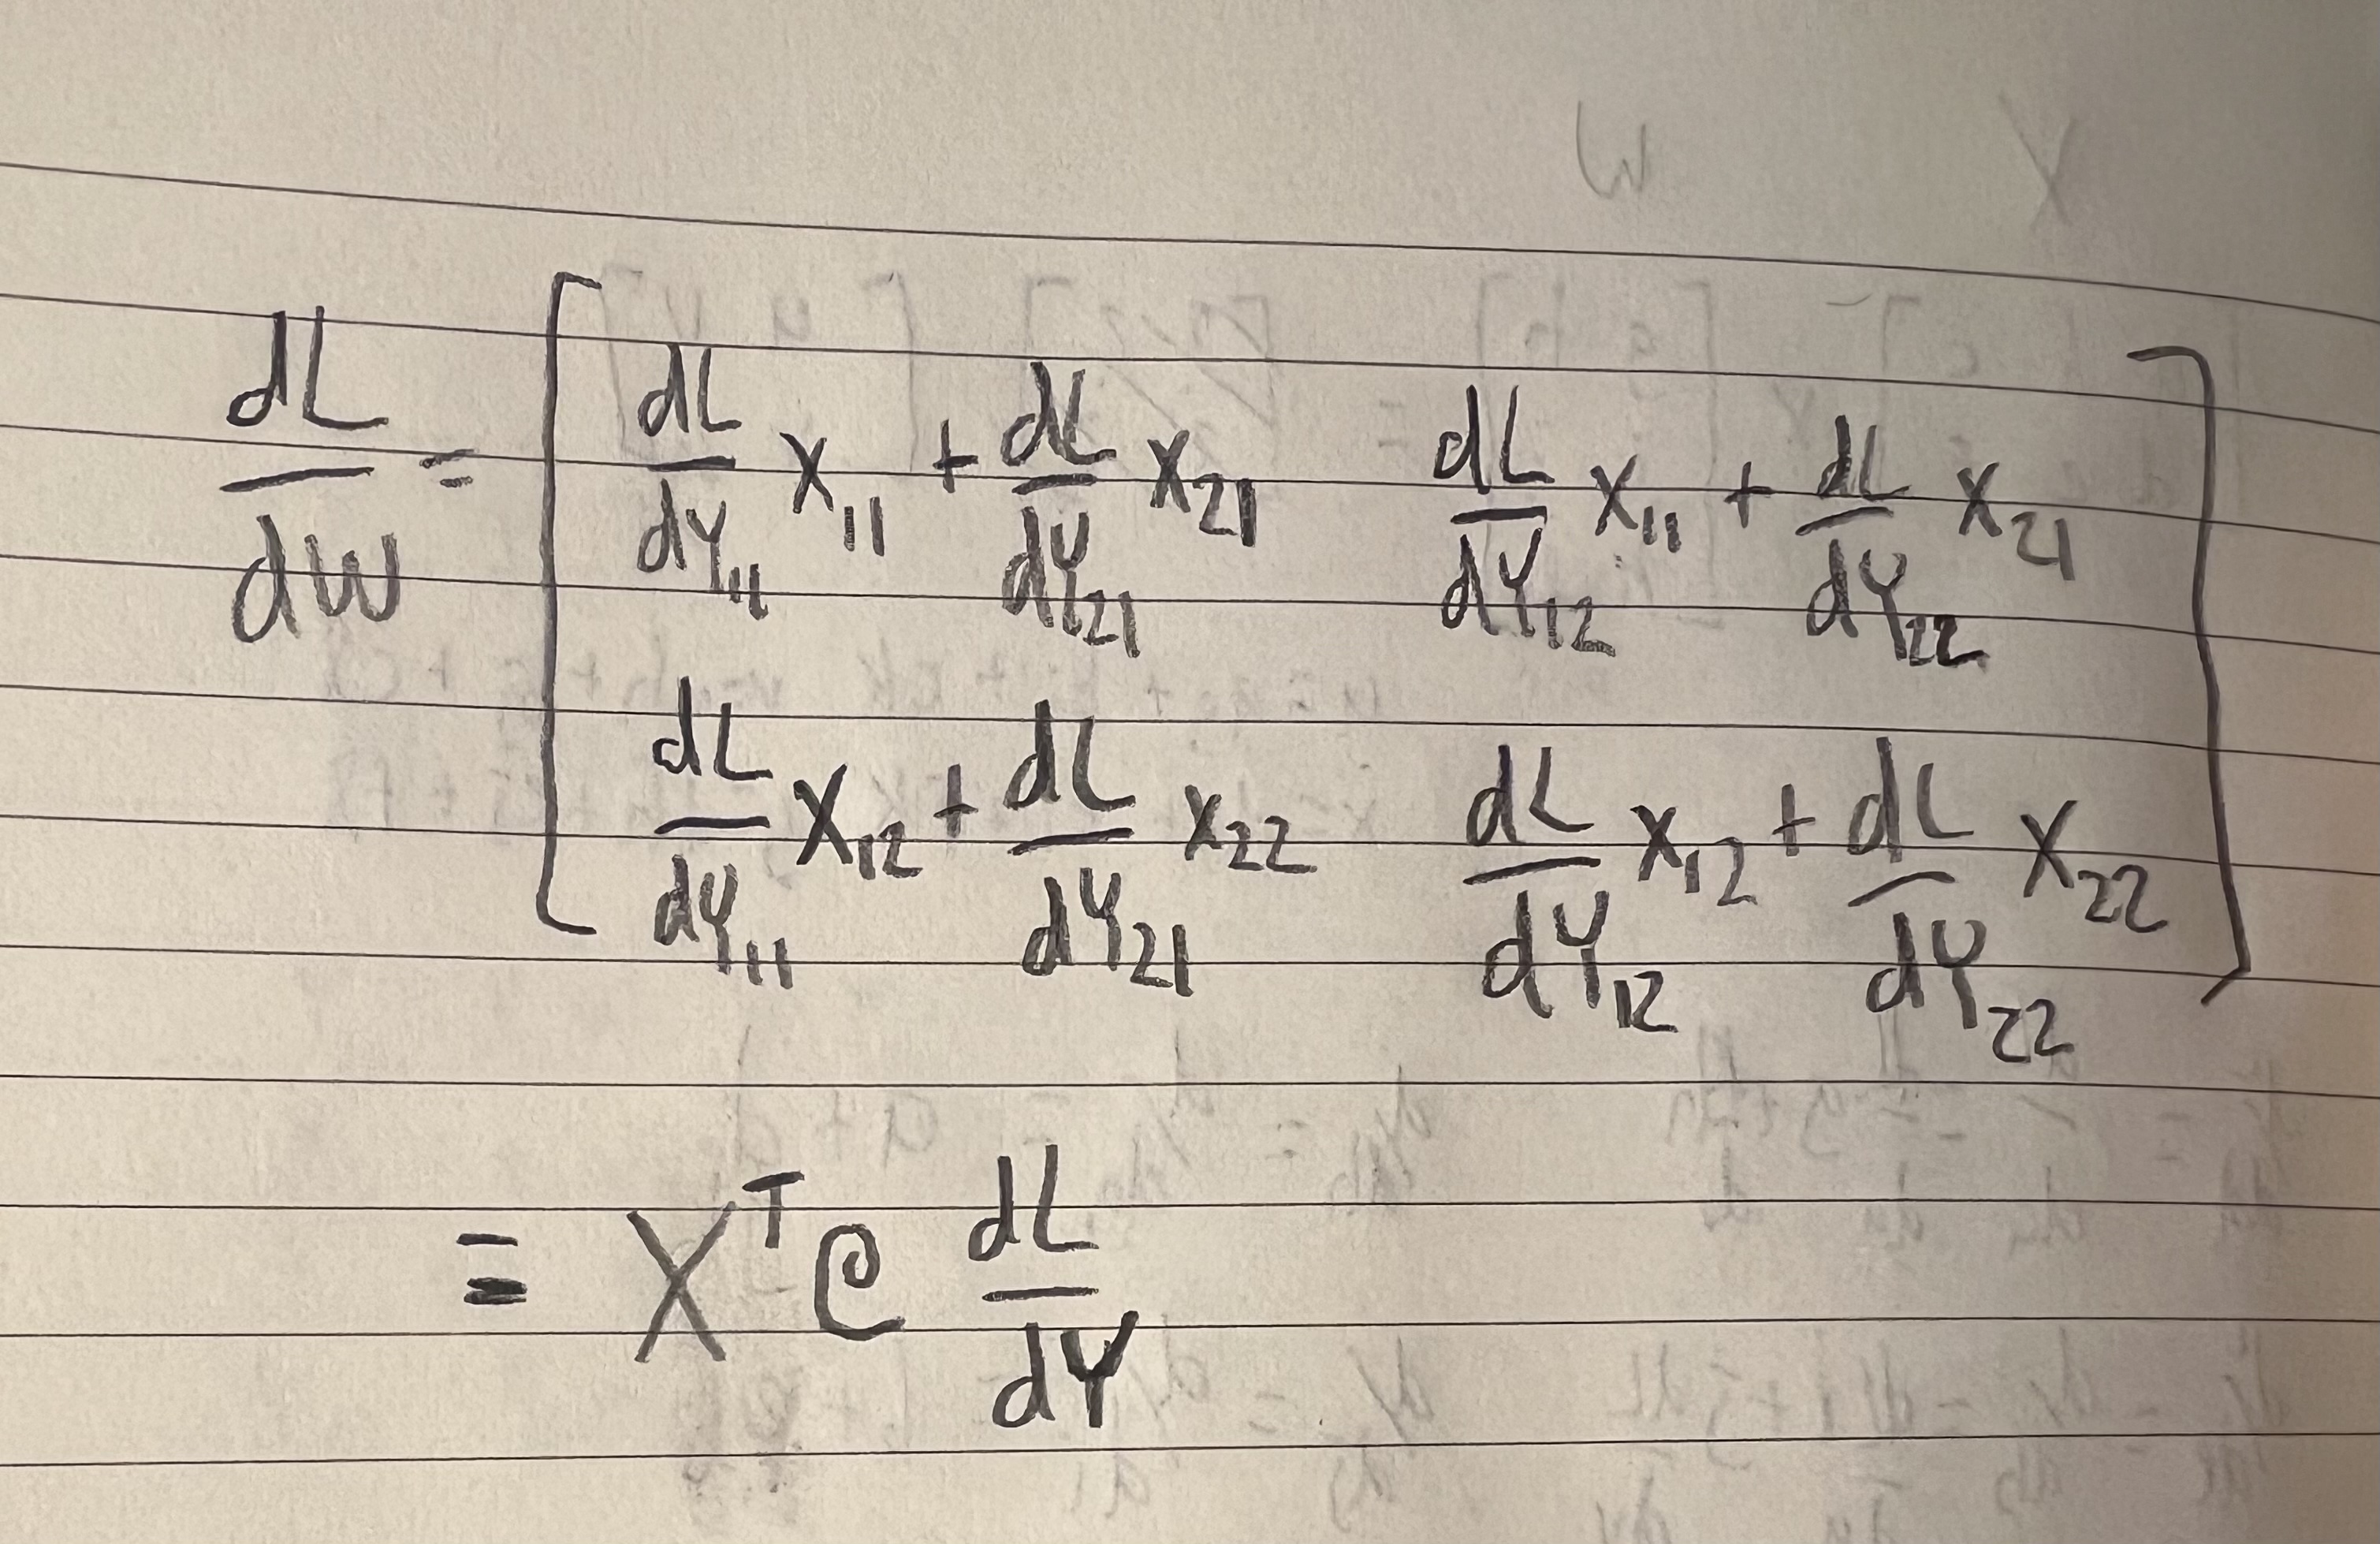 dL/dW = [ dL/dY₁₁ X₁₁ + dL/dY₂₁ X₂₁    dL/dY₁₂ X₁₁ + dL/dY₂₂ X₂₁
dL/dY₁₁ X₁₂ + dL/dY₂₁ X₂₂    dL/dY₁₂ X₁₂ + dL/dY₂₂ X₂₂ ]
= Xᵀ @ dL/dY